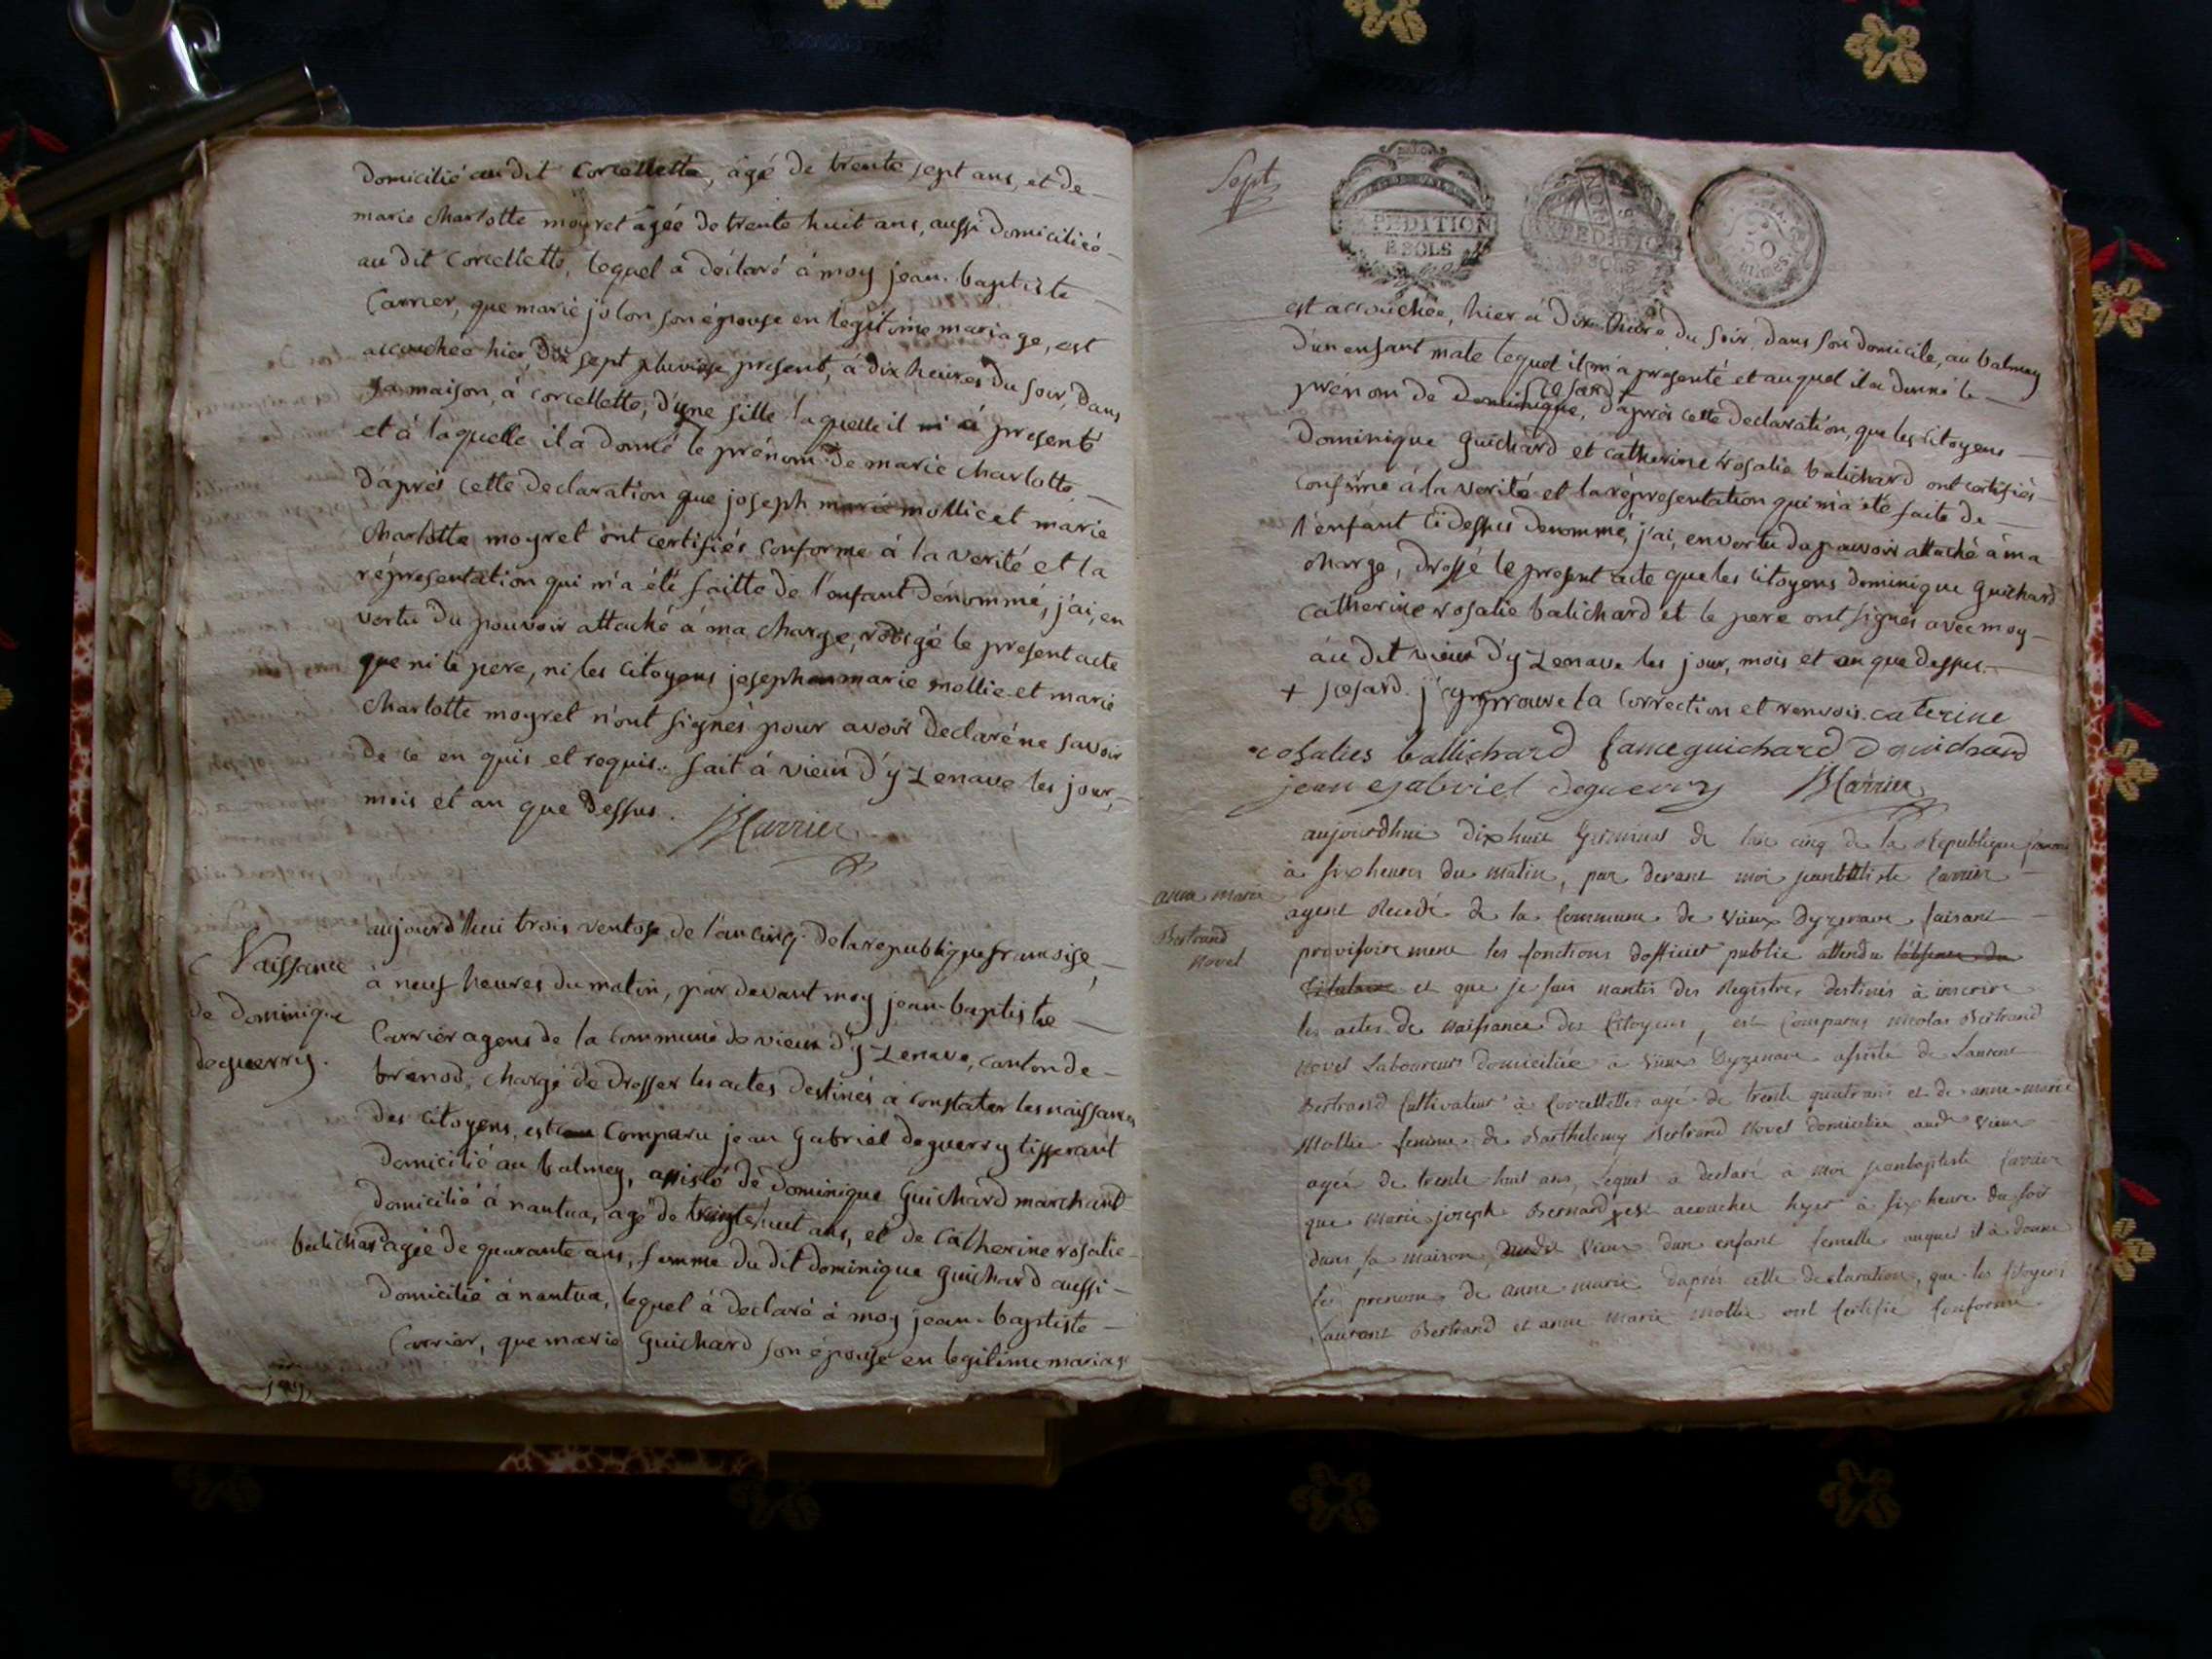 domicilié au dit Corcellette, âgé de trente sept ans, et de
marie charlotte moyret agée de trente huit ans, aussi domiciliée
au dit Corcellette, lequel a déclaré à moy jean-baptiste
Carrier, que marie jolon son épouse en legitime mariage, est
accouchée hier dix sept pluviose present, à dix heures du soir, dans
sa maison, à corcellette, d'une fille laquelle il m'a presenté
et à laquelle il a donné le prénom de marie charlotte,
d'après cette declaration que joseph marie mollie et marie
charlotte moyret ont certifiés conforme à la verité et la
répresentation qui m'a été faitte de l'enfant dénommé, j'ai, en
vertu du pouvoir attaché á ma charge, redigé le present acte
que ni le pere, ni les citoyens joseph marie mollie et marie
charlotte moyret n'ont signés pour avoir declaré ne savoir
de ce en quis et requis. fait á vieux d'yzenave les jour,
mois et an que dessus. JBCarrier
Naissance
de dominique
deguerry.
aujourd'hui trois ventose de l'an cinq de la republique francoise,
à neuf heures du matin, par devant moy jean-baptiste
Carrier agent de la commune de vieux d'yzenave, canton de
brenod, chargé de dresser les actes destinés à constater les naissances
des citoyens, est comparu jean Gabriel deguerry tisserant
domicilié au balmey, assisté de dominique Guichard marchant
domicilié à nantua, agé de trente huit ans, et de catherine rosalie
balichard agée de quarante ans, femme du dit dominique guichard aussi
domicilié à nantua, lequel à declaré à moy jean-baptiste
Carrier, que marie Guichard son épouse en legitime mariage
Sept
EXPEDITION
2 SOLS
EXPEDITION
2 SOLS
50
est accouchée, hier à dix heure du soir, dans son domicile, au balmey
d'un enfant male lequel il m'a presenté et auquel il a donné le
prénom de dominique, d'après cette declaration, que les citoyens
dominique Guichard et catherine rosalie balichard ont certifiés
conforme á la verité et la répresentation qui m'a été faite de
l'enfant ci dessus denommé, j'ai, en vertu du pouvoir attaché à ma
charge, dressé le present acte que les citoyens dominique guichard
catherine rosalie balichard et le pere ont signés avec moy
áu dit vieux d'yzenave les jour, mois et an que dessus.
+ josard. j'approuve la correction et renvois. caterine
rosalies ballichard fame guichard d guichard
jean gabriel deguerry JBCarrier
anna marie
Bertrand
Novel
aujourdhui dix huit Germinal de lan cinq de la Republique
à six heures du matin, par devant moi jeanbatiste Carrier
agent de la Commune de Vieux dyzenave faisant
provisoirement les fonctions dofficier public attendu labsence du
titulaire et que je suis nantis des Registres destinés à inscrire
les actes de naissance des Citoyens, est Comparus nicolas Bertrand
novel Laboureur domiciliée à Vieux Dyzenave assisté de Laurent
Bertrand Cultivateur à Corcellette agé de trente quatrans et de anne-marie
Mollie femme de Barthelemy Bertrand Novel domiciliée audit Vieux
agée de trente huit ans, Lequel à declaré à moi jeanbaptiste Carrier
que Marie joseph Bernard est acouchée hyer à six heure du soir
dans sa maison, audit Vieux dun enfant femelle auquel il à donné
les prenoms de anne marie daprès cette declaration, que les Citoyens
Laurent Bertrand et anne Marie Mollie ont Certifié Conforme